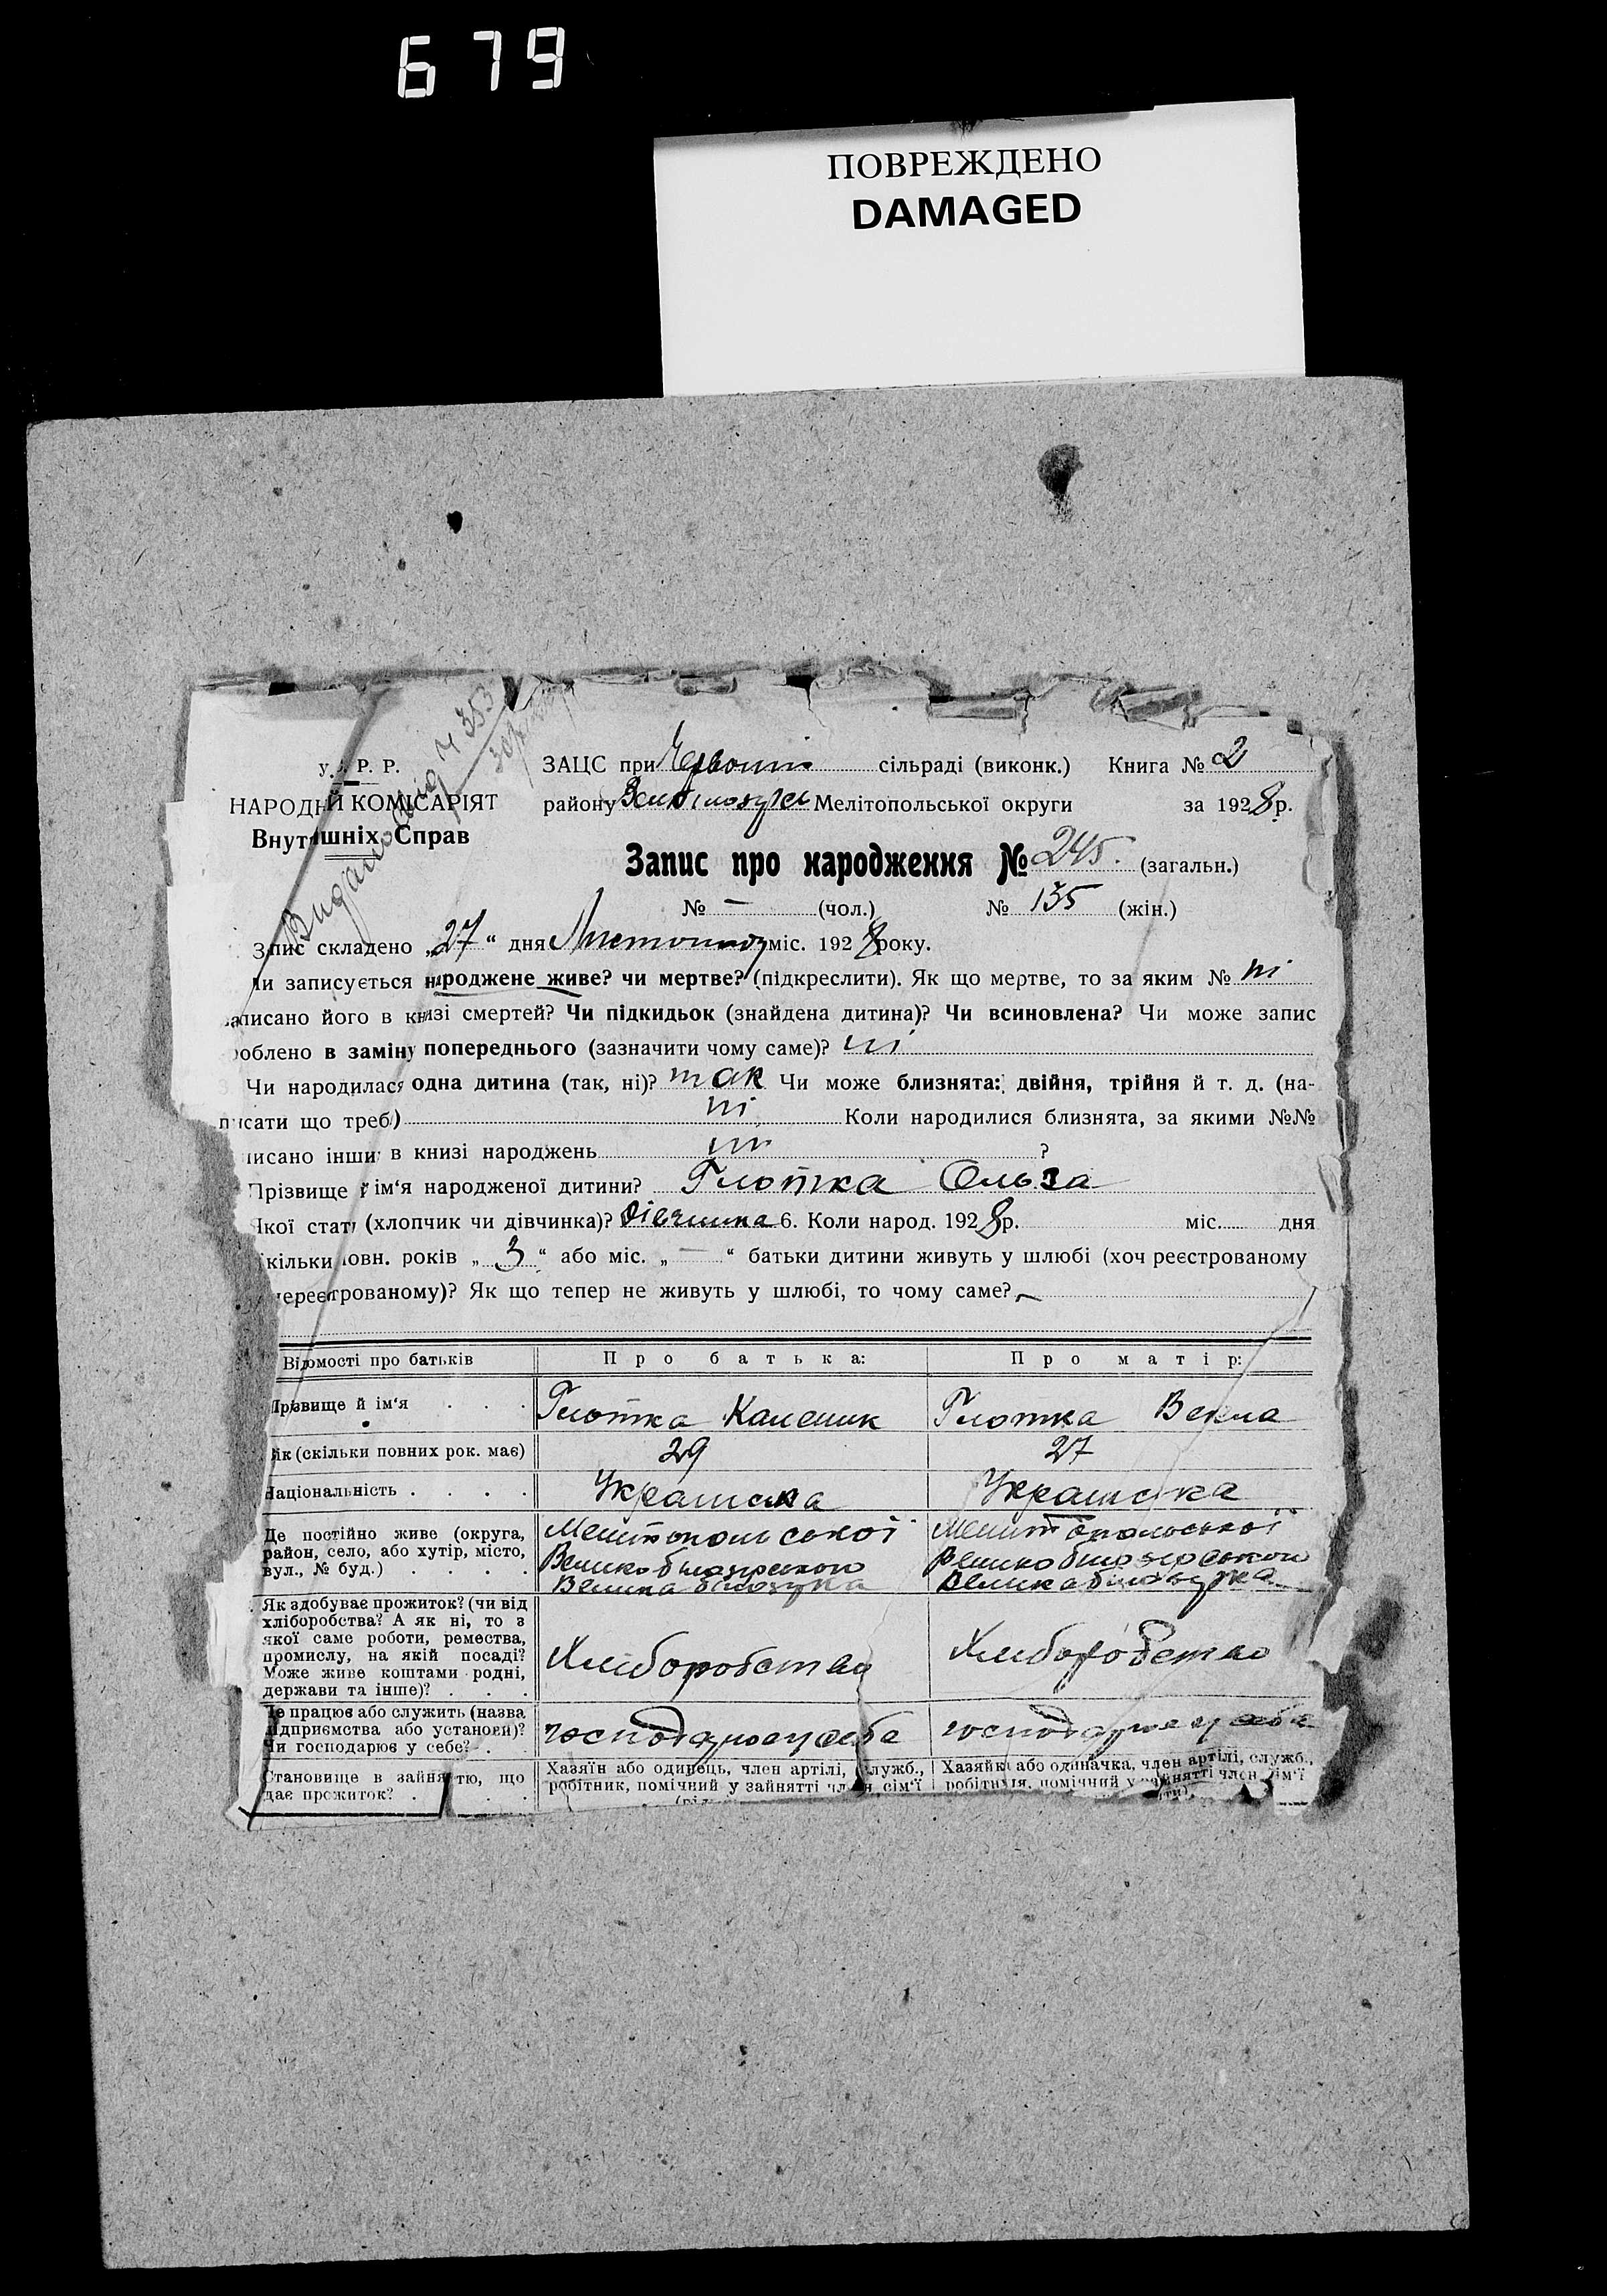 679
ПОВРЕЖДЕНО
DAMAGED
У. Р. Р.
НАРОДН Й КОМІСАРІЯТ
Внут шніх Справ
Видано
ЗАЦС при сільраді (виконк.) Книга № 2
району Мелітопольської округи за 1928 р.
Запис про народження № 245. (загальн.)
№ – (чол.) № 135 (жін.)
Запис складено „27“ дня Листопаду міс. 1928 року.
чи записується народжене живе? чи мертве? (підкреслити). Як що мертве, то за яким № ні
записано його в книзі смертей? Чи підкидьок (знайдена дитина)? Чи всиновлена? Чи може запис
роблено в заміну попереднього (зазначити чому саме)? ні
3 Чи народилася одна дитина (так, ні)? так Чи може близнята: двійня, трійня й т. д. (на-
писати що треб ) ні Коли народилися близнята, за якими №№
писано інши в книзі народжень ні ?
Прізвище й ім‘я народженої дитини? Глотка Ольга
Якої статі (хлопчик чи дівчинка)? дівчинка 6. Коли народ. 1928 р. міс. дня
кільки повн. років „3“ або міс. „–“ батьки дитини живуть у шлюбі (хоч реєстрованому
нереєстрованому)? Як що тепер не живуть у шлюбі, то чому саме? –
Відомості про батьків Про батька: Про матір:
Прізвище й ім‘я . . . Глотка Каленик Глотка Векла
Вік (скільки повних рок. має) 29 27
Національність . . . . Українська Українська
Де постійно живе (округа, район, село, або хутір, місто, вул., № буд.) . . . .
Мелитопольської Мелитопольської
Великобилозерського Великобилозерського
Велика билозерка Великабилозерка
Як здобуває прожиток? (чи від
хліборобства? А як ні, то з
якої саме роботи, ремества,
промислу, на якій посаді?
Може живе коштами родні,
держави та інше)? . . .
Хліборобство Хліборобство
Де працює або служить (назва
підприємства або установи)?
Чи господарює у себе? . .
господарює у себе господарює у себе
Становище в зайняттю, що
дає прожиток? . . . .
Хазяїн або одинець, член артілі, служб.,
робітник, помічний у зайнятті член сім‘ї
Хазяйка або одиначка, член артілі, служб.,
робітниця, помічний у зайнятті член сім‘ї